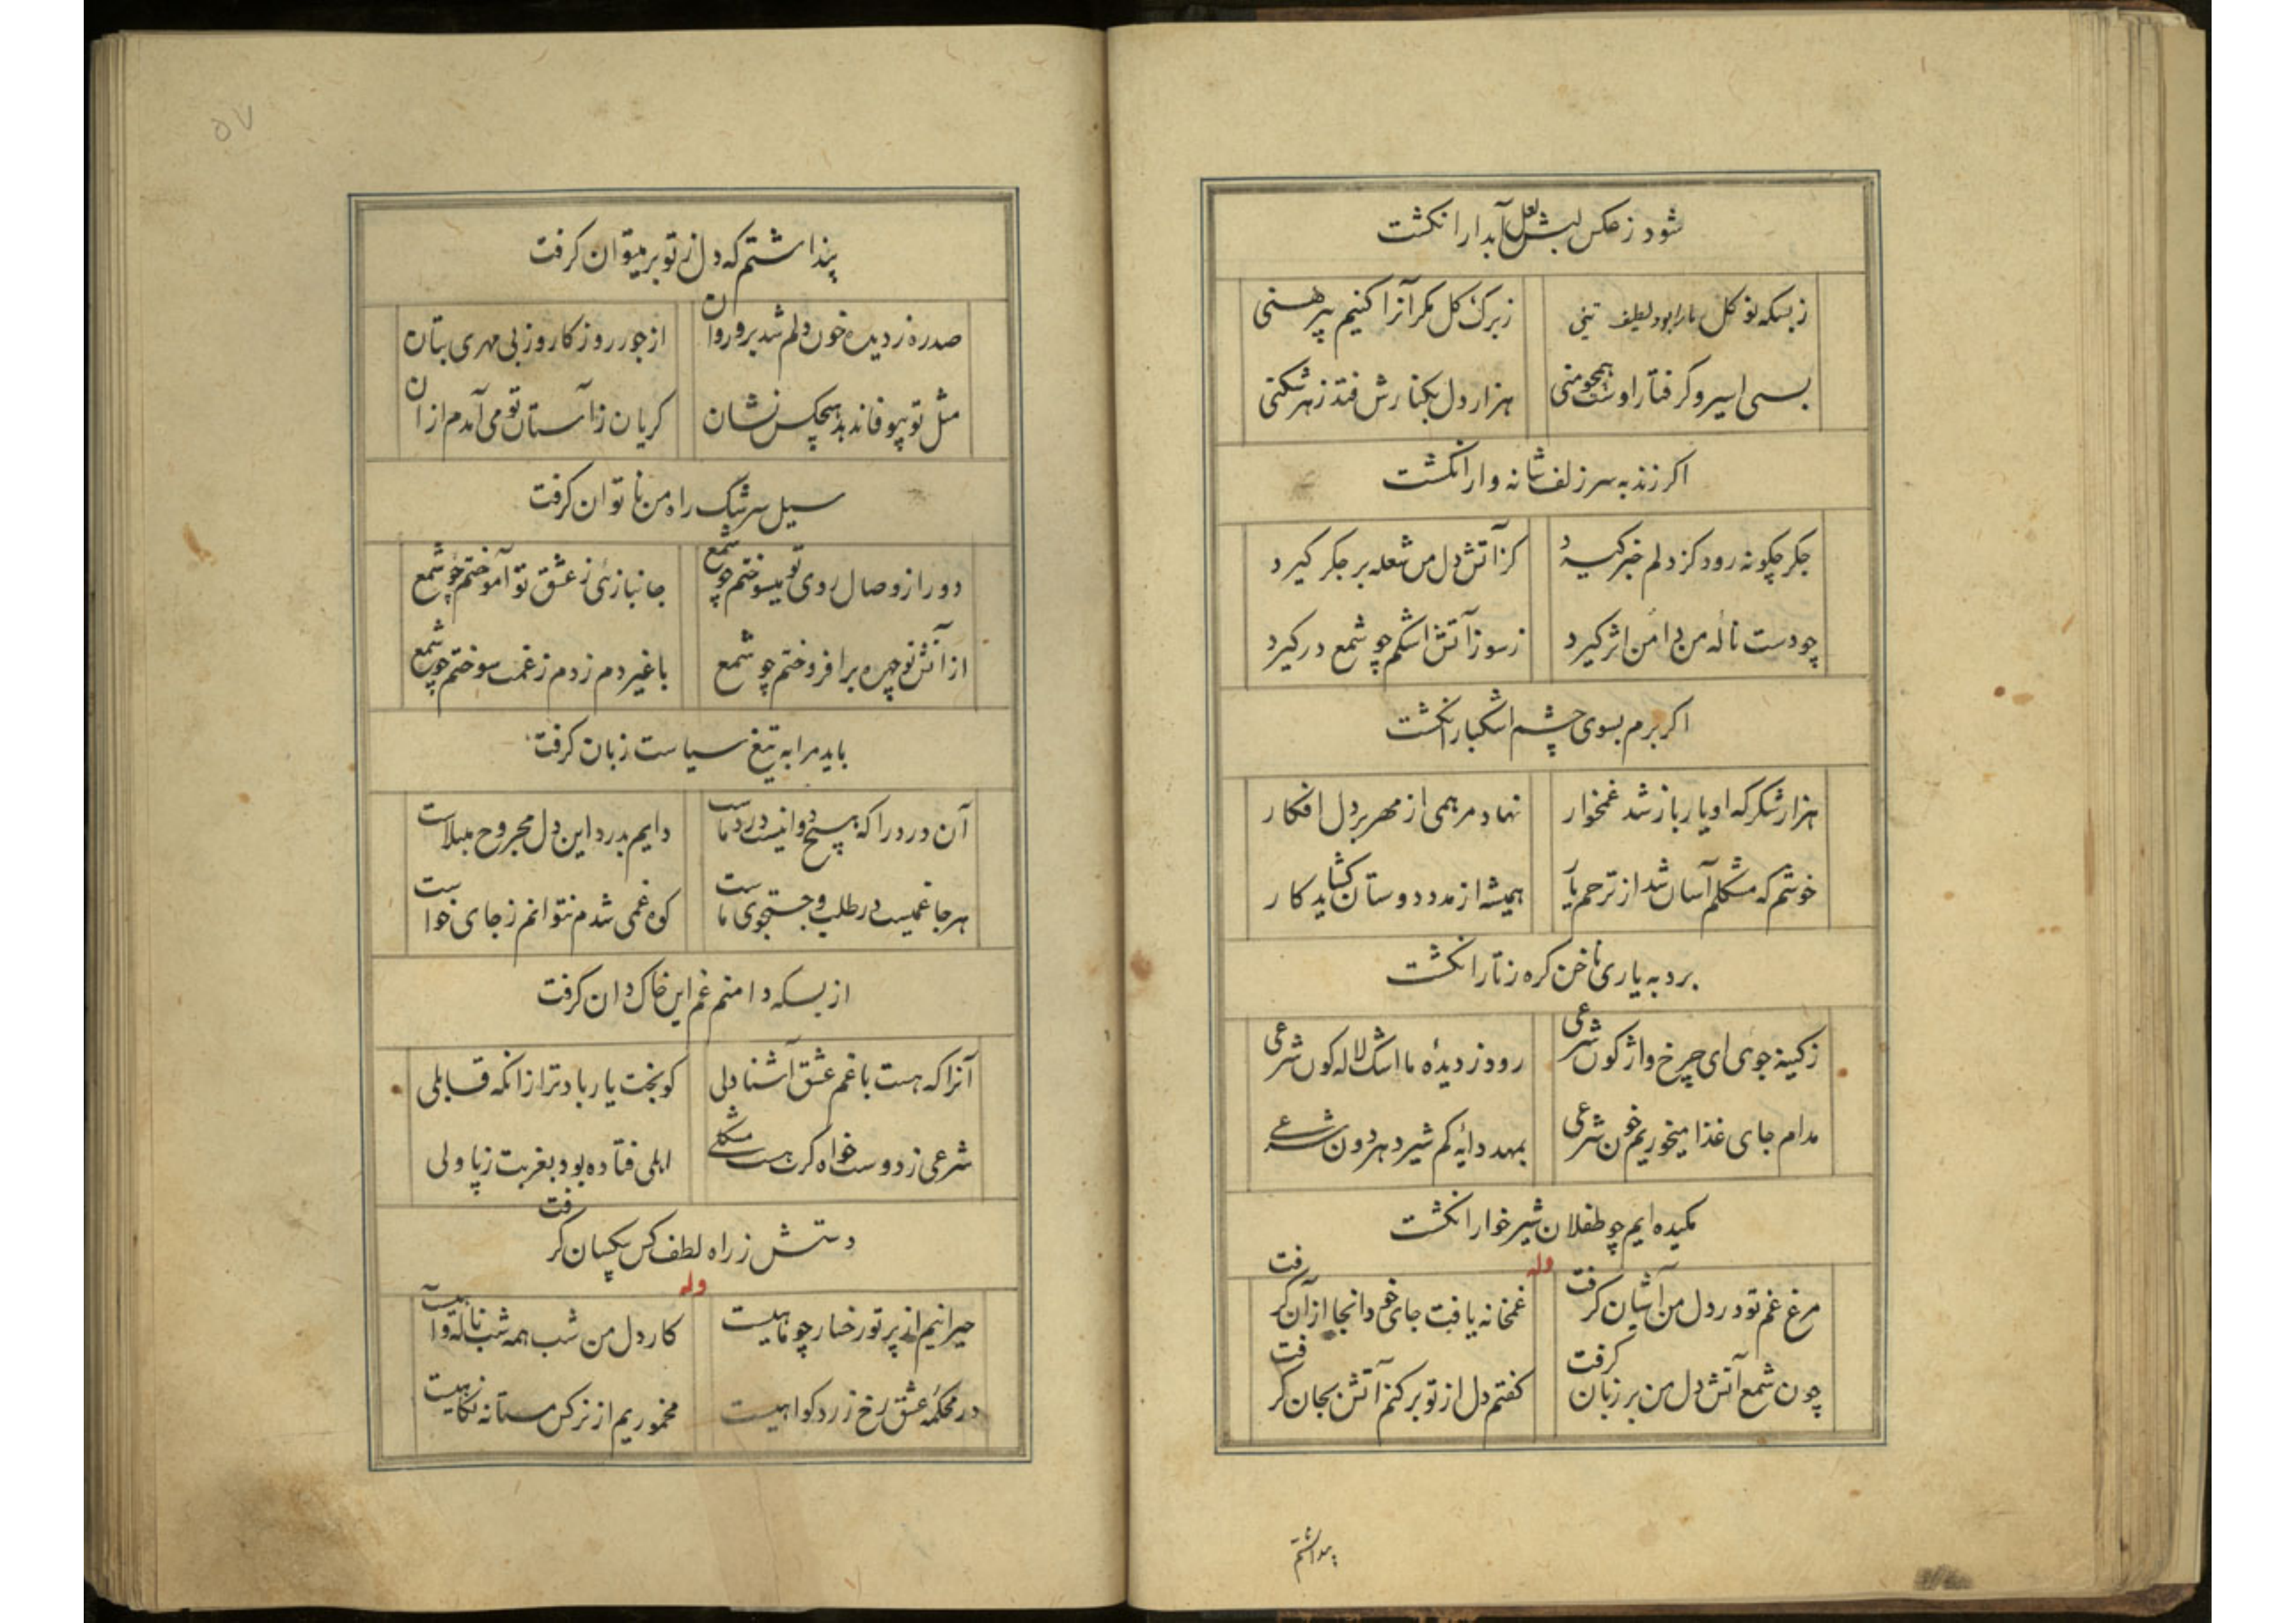 شود ز عکس لبش لعل آبدار انکشت
زبسکه نو کل ما را بود لطیف تنی
ز برک کل مکر آنرا کنیم پیرهنی
بسی اسیر و کرفتار اوست همچو منی
هزار دل بکنارش فتد ز هر شکنی
اکر زند به سر زلف شانه وار انکشت
جکر چکونه رود کز دلم خبر کیرد
کز آتش دل من شعله بر جکر کیرد
چو دست ناله من دامن اثر کیرد
ز سوز آتش اشکم چو شمع در کیرد
اکر برم بسوی چشم اشکبار انکشت
هزار شکر که او یار باز شد غمخوار
نهاد مرهمی از مهر بر دل افکار
خوشم که مشکلم آسان شد از ترحم یار
همیشه از مدد دوستان کشاید کار
برد به یاری ناخن کره ز تار انکشت
ز کینه جوی ای چرخ واژکون شرعی
رود ز دیده ما اشک لاله کون شرعی
مدام جای غذا میخوریم خون شرعی
بمهد دایه کم شیر دهر دون شرعی
مکیده ایم چو طفلان شیر خوار انکشت
وله
مرغ غم تو در دل من آشیان کرفت
غمخانه یافت جای خود انجا از آن کرفت
چون شمع آتش دل من بر زبان کرفت
کفتم دل از تو بر کنم آتش بجان کرفت
پنداشتم
۵۷
پنداشتم که دل ز تو بر میتوان کرفت
صدره ز دیده خون دلم شد برو روان
از جور روزکار و ز بی مهری بتان
مثل تو بیوفا ندهد هیچکس نشان
کریان ز آستان تو می آمدم از ان
سیل سرشک راه من ناتوان کرفت
دور از وصال روی تو میسوختم چو شمع
جانبازئی ز عشق تو آموختم چو شمع
از آتش تو چهره بر افروختم چو شمع
با غیر دم زدم ز غمت سوختم چو شمع
باید مرا به تیغ سیاست زبان کرفت
آن درد را که هیچ دوا نیست درد ماست
دایم بدرد این دل مجروح مبتلاست
هر جا غمیست در طلب و جستجوی ماست
کوه غمی شدم نتوانم ز جای خواست
از بسکه دامنم غم این خاکدان کرفت
آنرا که هست با غم عشق آشنا دلی
کو بخت یار باد تر از انکه قابلی
شرعی ز دوست خواه کرت هست مشکلی
اهلی فتاده بود بغربت ز پا ولی
دستش ز راه لطف کس بیکسان کرفت
وله
حیرانیم از پرتو رخسار چو ماهیست
کار دل من شب همه شب ناله و آهیست
در محکمه عشق رخ زرد کواهیست
مخموریم از نرکس مستانه نکاهیست